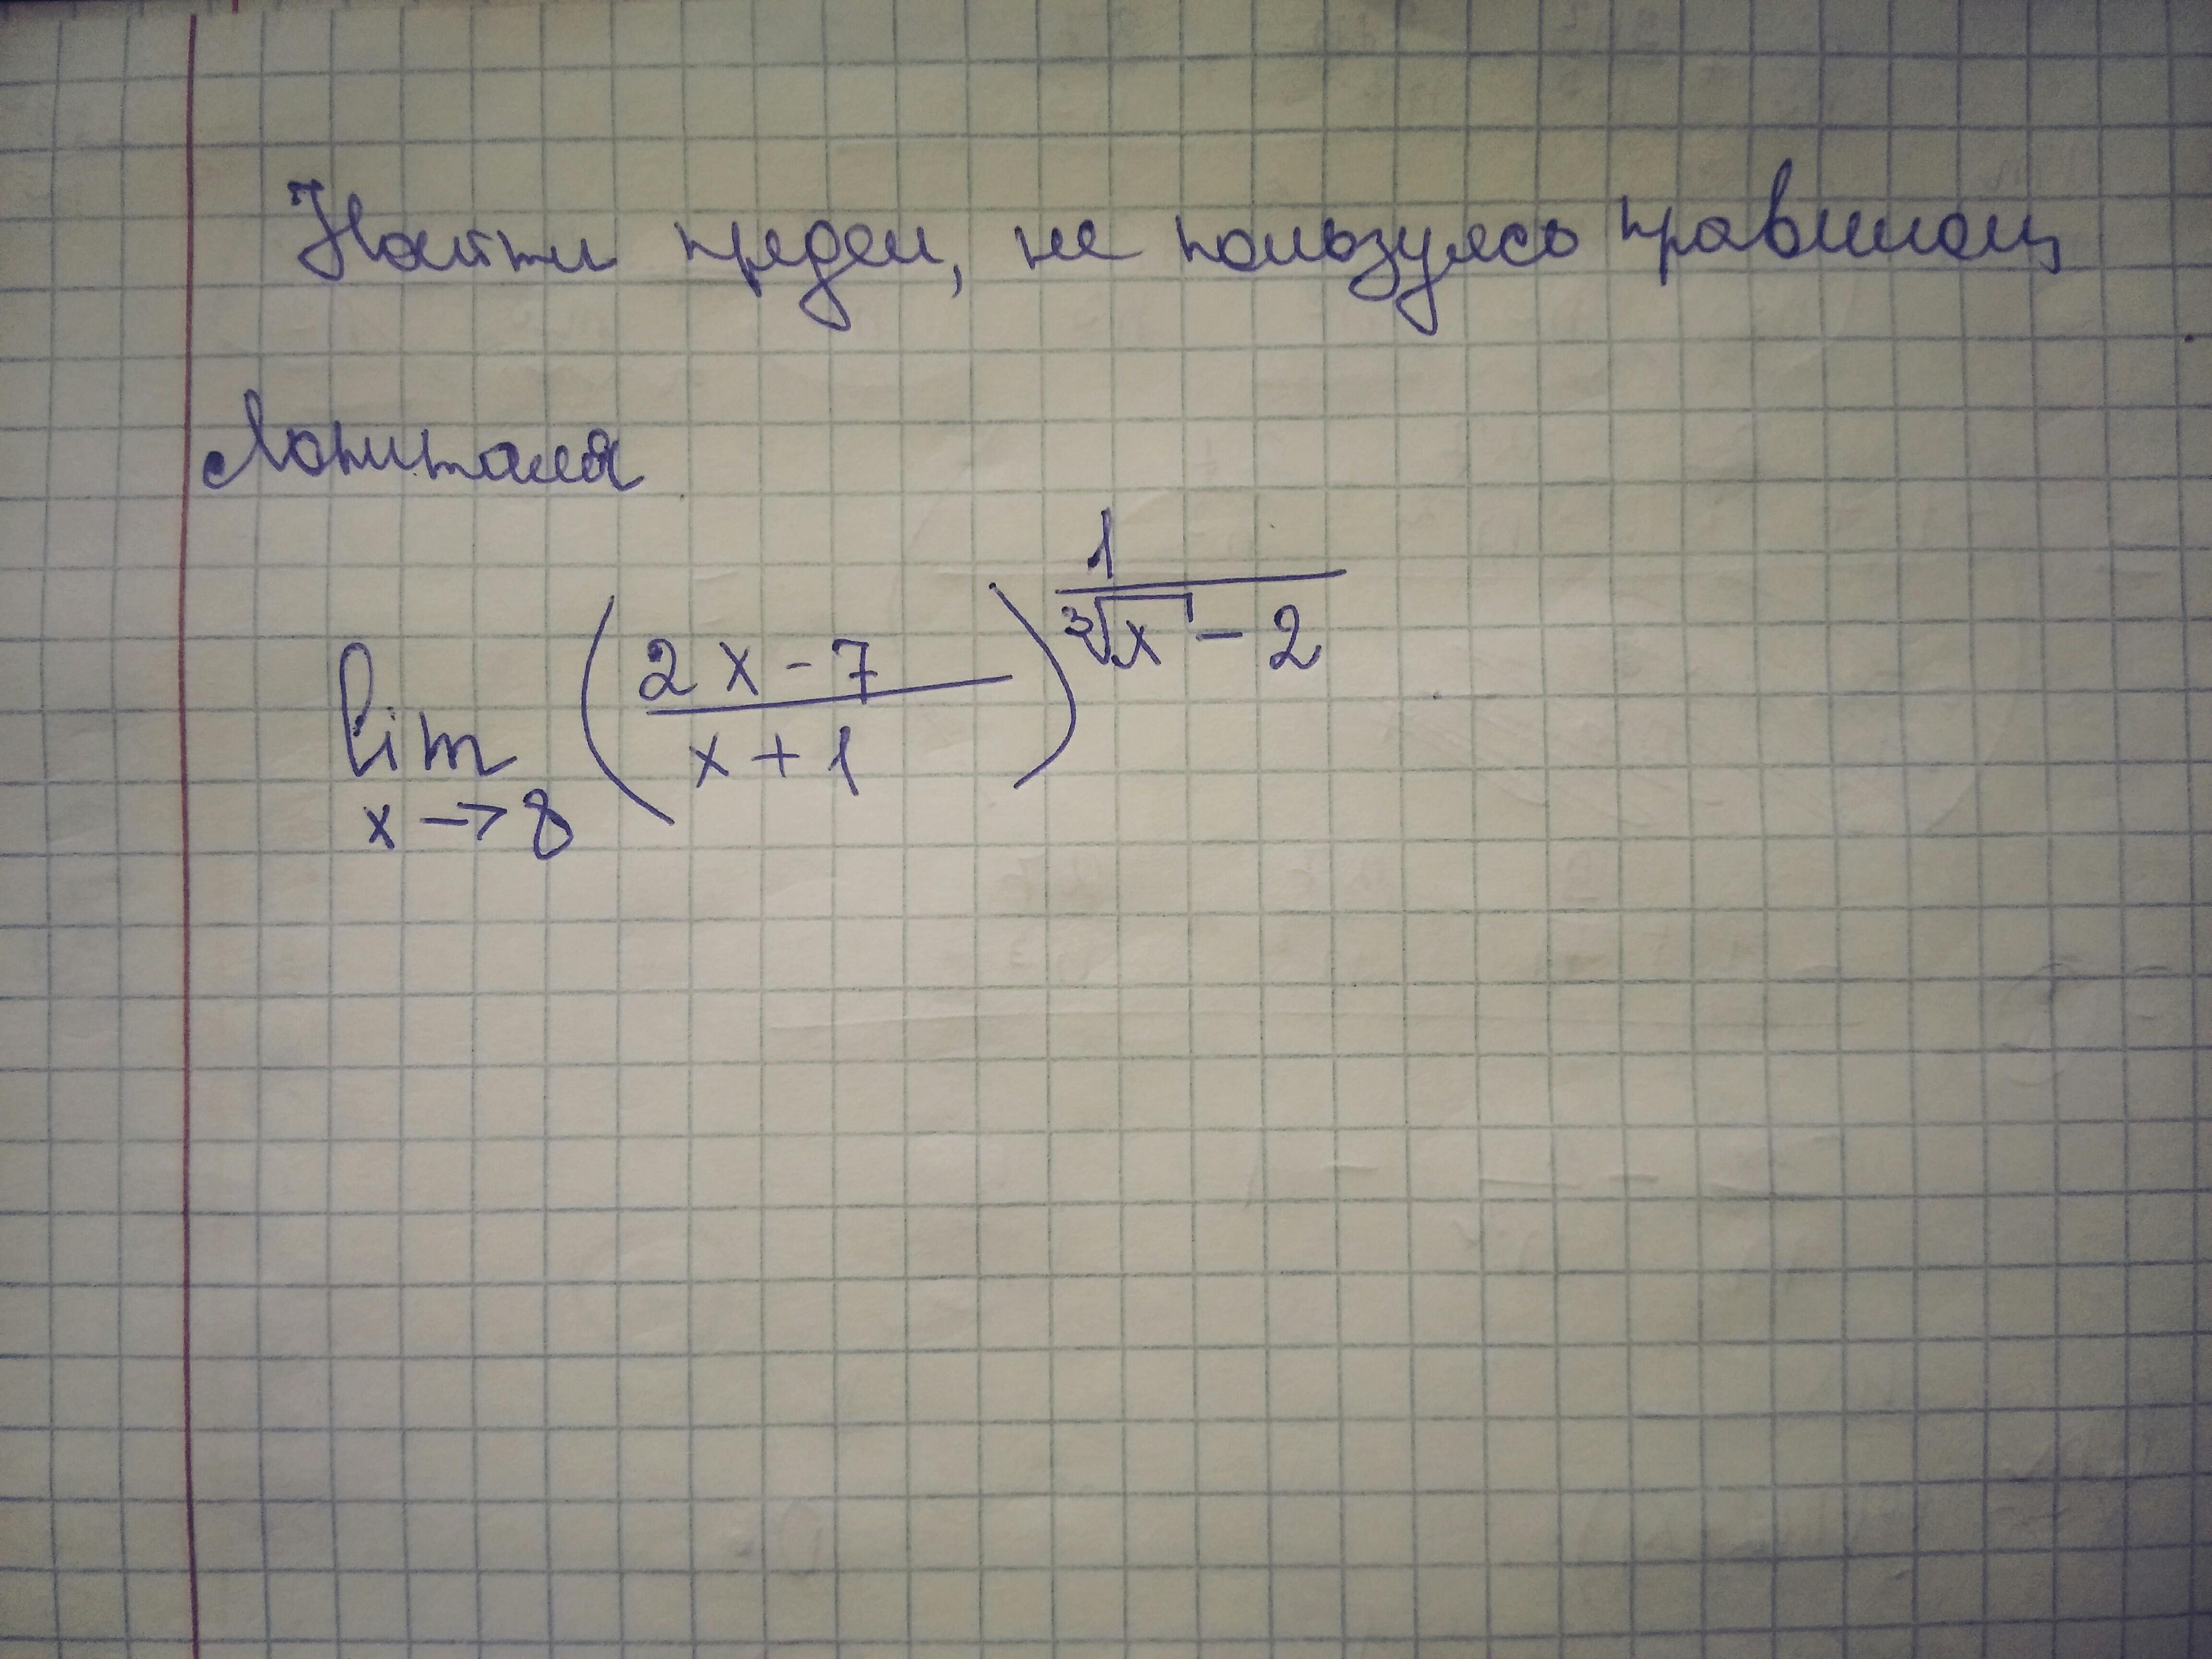 Найти предел, не пользуясь правилом
Лопиталя
lim x→8 ((2x-7)/(x+1))^(1/(∛x - 2))